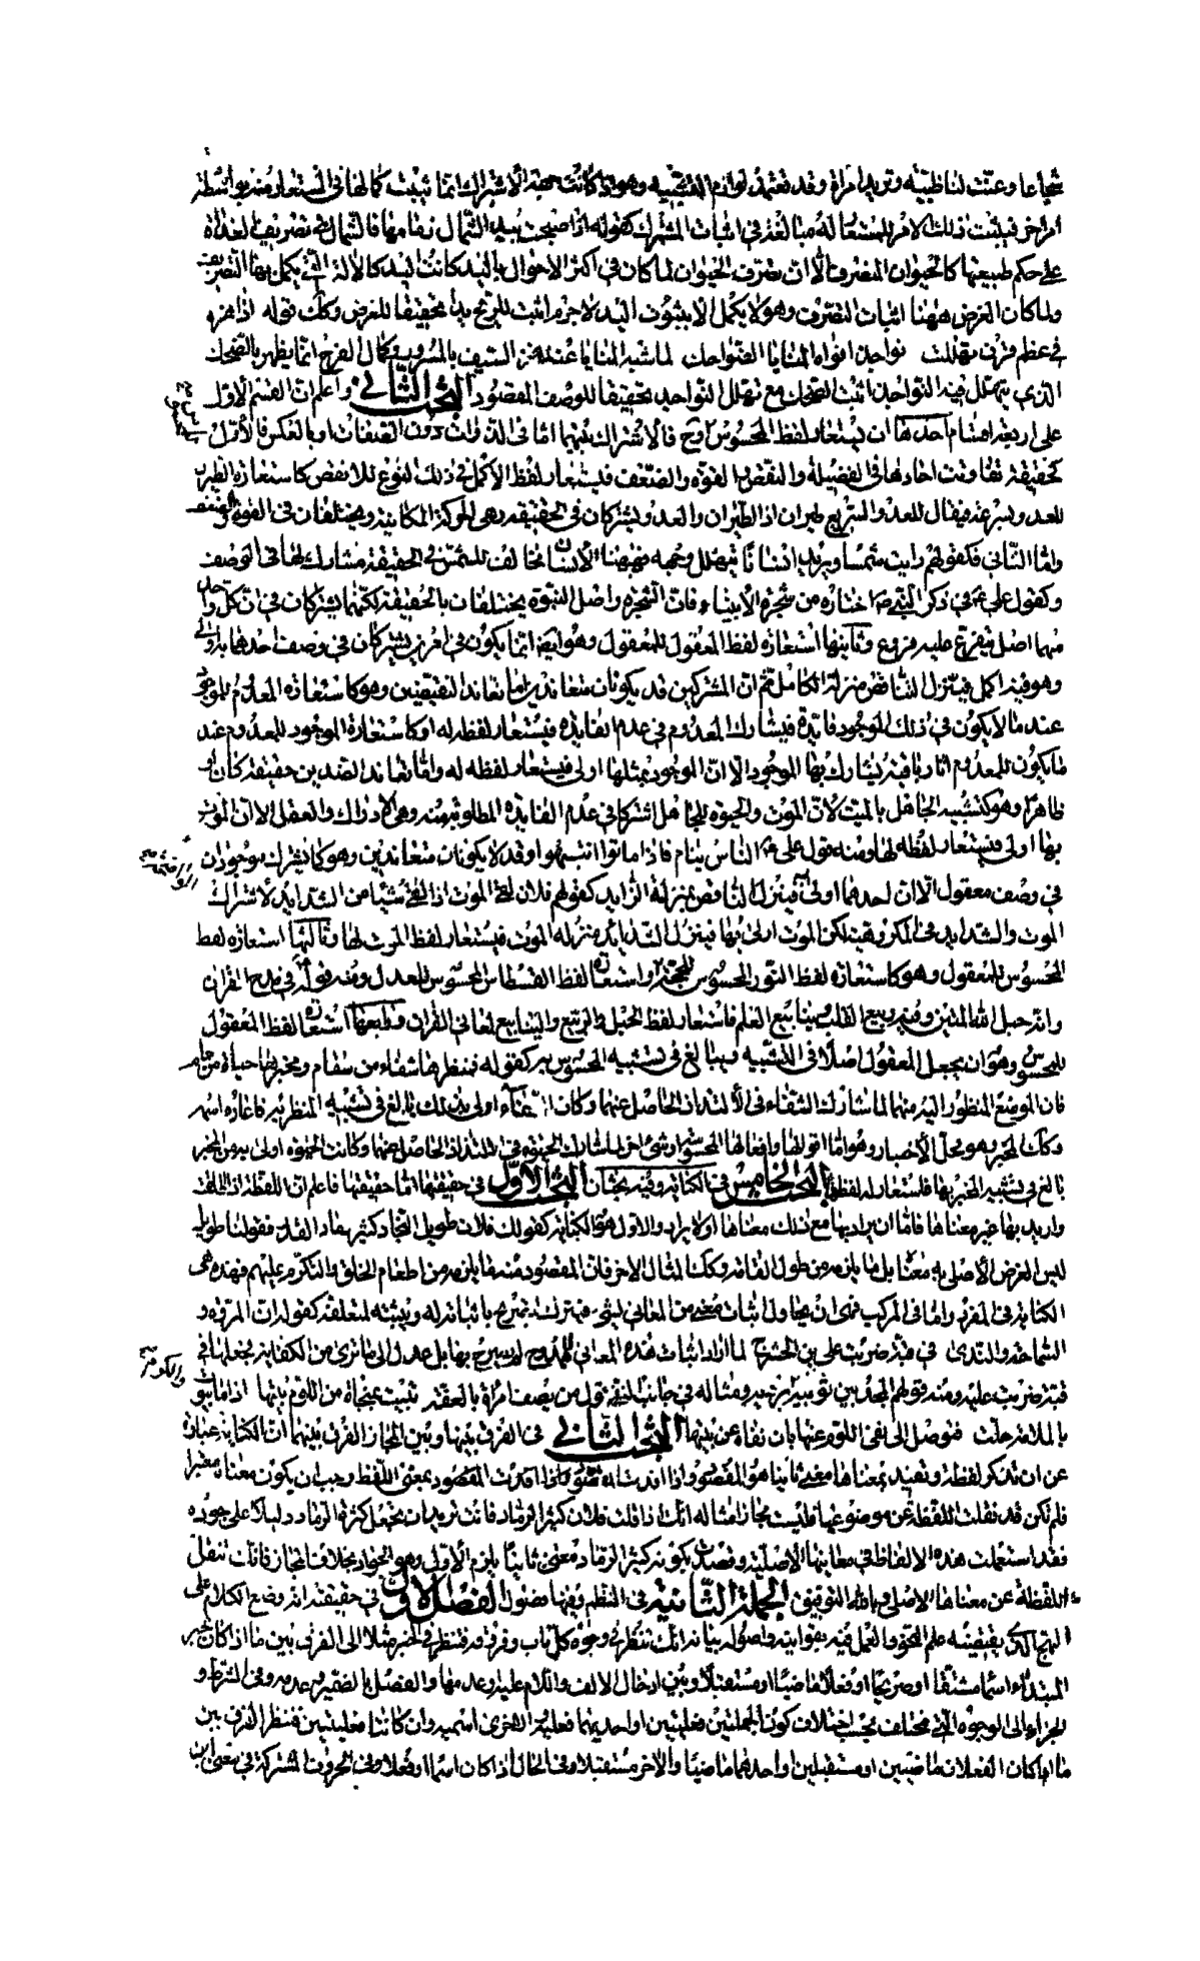 شجاعا وعنّت لنا ظبية وتريد امرأة وقد تعتمد لوازم التشبيه وهو اذا كانت جهة الاشتراك انما ثبتت كمالها فى المستعار منه بواسطة
امر اخر فيثبت ذلك الامر للمستعار له مبالغة فى اثبات المشترك كقوله اذ اصبحت بيد الشمال زمامها فالشمال فى تصريف الغداة
على حكم طبيعتها كالحيوان المتصرف الا ان تصرف الحيوان لما كان فى اكثر الاحوال باليد كانت اليد كالآلة التى يكمل بها التصريف
ولما كان الغرض ههنا اثبات التصرف وهو لا يكمل الا بثبوت اليد لا جرم اثبت للريح يدا تحقيقا للغرض وكذلك قوله اذا هزه
فى عظم قرن تهللت نواجذ افواه المنايا الضواحك لما شبه المنايا عند هزه السيف بالمسرور وكمال الفرح انما يظهر بالضحك
الذى يتهلل فيه النواجذ اثبت الضحك مع تهلل النواجذ تحقيقا للوصف المقصود البحث الثانى واعلم ان القسم الاول
على اربعة اقسام احدها ان يستعار لفظ المحسوس وح فالاشتراك بينهما اما فى الذوات دون الصفات او بالعكس فالاول
كحقيقة تفاوتت احادها فى الفضيلة والنقص والقوة والضعف فيستعار لفظ الاكمل فى ذلك النوع للانقص كاستعارة الطيران
للعدو بسرعة فيقال للعدو السريع طيران اذ الطيران والعدو يشتركان فى الحقيقة وهى الحركة المكانية ويختلفان فى القوة والضعف
واما الثانى فكقولهم رايت شمسا ويريد انسانا يتهلل وجهه فههنا الانسان مخالف للشمس فى الحقيقة مشارك لها فى الوصف
وكقول على فى ذكر النبى ص اختاره من شجرة الانبياء فان الشجرة واصل النبوة يختلفان بالحقيقة لكنهما يشتركان فى ان كل واحد
منهما اصل يتفرع عليه فروع وثانيها استعارة لفظ المعقول للمعقول وهو ايضا انما يكون فى امرين يشتركان فى وصف احدهما به اولى
وهو فيه اكمل فيتنزل الناقص منزلة الكامل ثم ان المشتركين قد يكونان متعاندين اما تعاند النقيضين وهو كاستعارة المعدوم للموجود
عند ما لا يكون فى ذلك الموجود فائدة فيشارك المعدوم فى عدم الفايدة فيستعار لفظه له او كاستعارة الموجود للمعدوم عند
ما يكون للمعدوم اثار باقية يشارك بها الموجود الا ان الموجود بمثلها اولى فيستعار لفظه له واما تعاند الضدين حقيقة كان او
ظاهرا وهو كتشبيه الجاهل بالميت لان الموت والحيوة للجاهل اشتركا فى عدم الفايدة المطلوبة منه وهى الادراك والعقل الا ان الموت
بها اولى فيستعار لفظه لها ومنه قول على الناس نيام فاذا ماتوا انتبهوا وقد لا يكونان متعاندين وهو كما يشترك موجودان
فى وصف معقول الا ان احدهما اولى به فينزل الناقص بمنزلة الزايد كقولهم فلان لقى الموت اذا لقى شيئا من الشدايد لاشتراك
الموت والشدايد فى المكروهية لكن الموت اولى بها فينزل الشدايد منزلة الموت فيستعار لفظ الموت لها وثالثها استعارة لفظ
المحسوس للمعقول وهو كاستعارة لفظ النور المحسوس للحجة واستعارة لفظ القسطاس المحسوس للعدل ومنه قوله فى مدح القران
وانه حبل الله المتين وفيه ربيع القلب وينابيع العلم فاستعار لفظ الحبل والربيع والينابيع لمعانى القران ورابعها استعارة لفظ المعقول
للمحسوس وهو ان يجعل المعقول اصلا فى التشبيه ويبالغ فى تشبيه المحسوس به كقوله فمنظرها شفاء من سقام ومخبرها حياة من حمام
فان الموضع المنظور اليه منهما لما شارك الشفاء فى الالتذاذ الحاصل عنهما وكان الشفاء اولى بذلك بالغ فى تشبيه المنظر به فاعاره اسمه
وكذلك المخبر وهو محل الاخبار وهو اما اقوالها وافعالها المحسوسة او شئ اخر لما شارك الحيوة فى الالتذاذ الحاصل عنهما وكانت الحيوة اولى به من المخبر
بالغ فى تشبيه المخبر بها فاستعار له لفظها البحث الخامس فى الكناية وفيه بحثان البحث الاول فى حقيقتها اما حقيقتها فاعلم ان اللفظة اذا اطلقت
واريد بها غير معناها فاما ان يراد بها مع ذلك معناها او لا يراد والاول هو الكناية كقولك فلان طويل النجاد كثير رماد القدر فقولنا طويل
ليس الغرض الاصلى به معناه بل ما يلزمه من طول القامة وكذلك المثال الاخر فان المقصود منه ما يلزمه من اطعام الخلق والتكرم عليهم فهذه هى
الكناية فى المفرد واما فى المركب فهى ان يحاول اثبات معنى من المعانى لشئ فيترك تصريح باثباته له ويثبته لمتعلقه كقوله ان المروة و
السماحة والندى فى قبة ضربت على بن الحشرج لما اراد اثبات هذه المعانى للممدوح لم يصرح بها بل عدل الى ما ترى من الكناية فجعلها فى
قبة ضربت عليه ومنه قولهم المجد بين ثوبيه والكرم بين برديه ومثاله فى جانب النفى قول من يصف امراة بالعفة تبيت بمنجاة من اللوم بيتها اذا ما بيوت
بالملامة حلت فتوصل الى نفى اللوم عنها بان نفاه عن بيتها البحث الثانى فى الفرق بينها وبين المجاز الفرق بينهما ان الكناية عبارة
عن ان تذكر لفظة وتفيد بمعناها معنى ثانيا هو المقصود واذا افدت المقصود بمعنى اللفظ وجب ان يكون معناه معتبرا
فلم تكن قد نقلت اللفظة عن موضوعها فليست مجازا مثاله انك اذا قلت فلان كثير الرماد فانت تريد ان تجعل كثرة الرماد دليلا على جوده
فقد استعملت هذه الالفاظ فى معانيها الاصلية وقصدت بكونه كثير الرماد معنى ثانيا يلزم الاول وهو الجود بخلاف المجاز فانك تنقل
اللفظة عن معناها الاصلى وبالله التوفيق الجملة الثانية فى النظم وفيها فصول الفصل الاول فى حقيقته انه وضع الكلام على
النهج الذى يقتضيه علم النحو والعمل فيه بقوانينه واصوله بيانه انك تنظر فى وجوه كل باب وفروقه فتنظر فى الخبر مثلا الى الفرق بين ما اذا كان الخبر
المبتداء اسما مشتقا او صريحا او فعلا ماضيا او مستقبلا وبين ادخال الالف واللام عليه وعدمها والفصل بالضمير وعدمه وفى الشرط و
الجزاء الى الوجوه التى تختلف بحسب اختلاف كون الجملتين فعليتين او احديهما فعلية والاخرى اسمية وان كانتا فعليتين فتنظر الفرق بين
ما اذا كان الفعلان ماضيين او مستقبلين او احدهما ماضيا والاخر مستقبلا وفى الحال اذا كان اسما او فعلا وفى الحروف المشتركة فى معنى اين